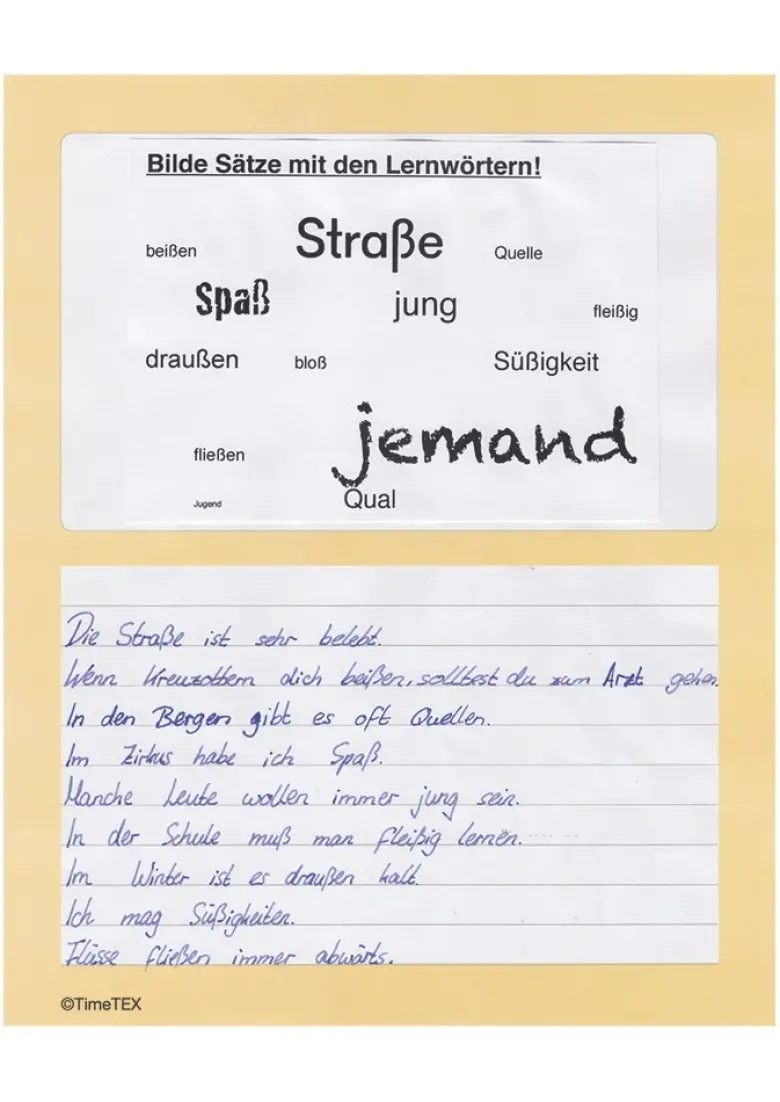 Bilde Sätze mit den Lernwörtern!
beißen Straße Quelle
Spaß jung fleißig
draußen bloß Süßigkeit
jemand
fließen
Jugend Qual
Die Straße ist sehr belebt.
Wenn Kreuzottern dich beißen, solltest du zum Arzt gehen.
In den Bergen gibt es oft Quellen.
Im Zirkus habe ich Spaß.
Manche Leute wollen immer jung sein.
In der Schule muß man fleißig lernen.
Im Winter ist es draußen kalt.
Ich mag Süßigkeiten.
Flüsse fließen immer abwärts.
©TimeTEX